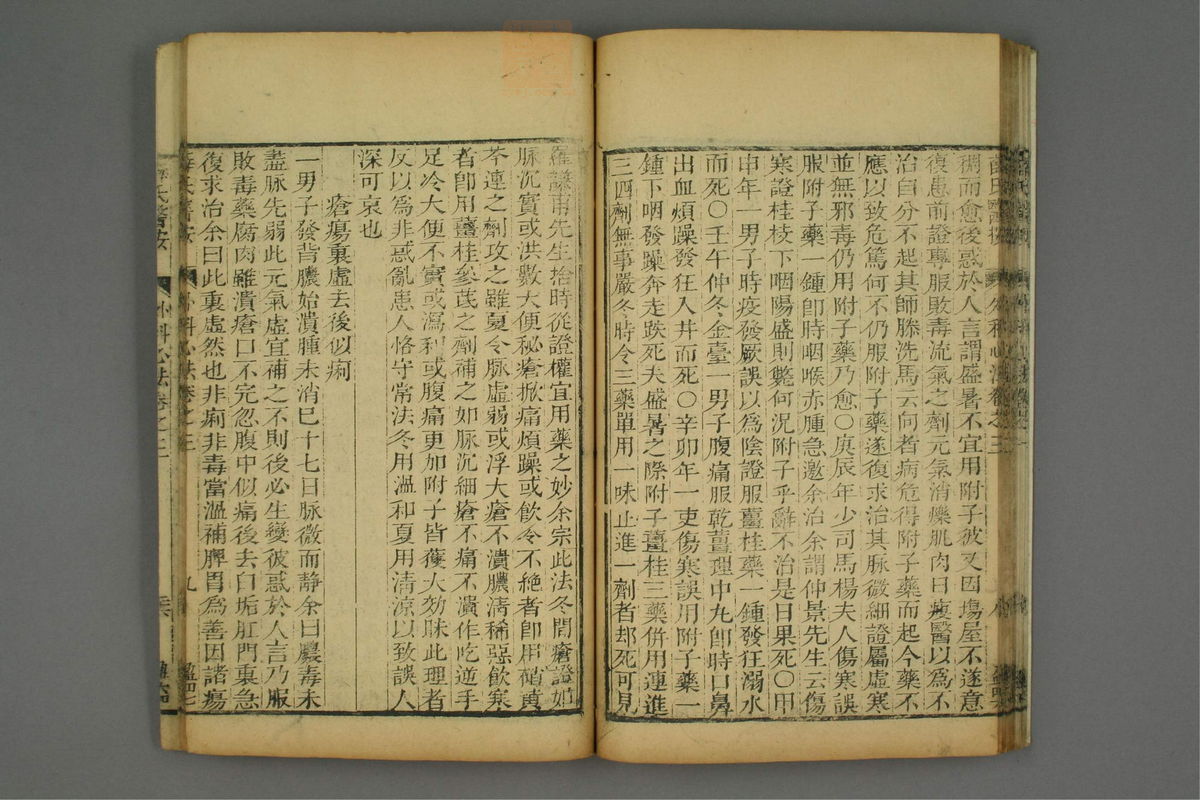 稠而愈後惑於人言謂盛暑不宜用附子彼又因塲屋不遂意
復患前證專服敗毒流氣之劑元氣消爍肌肉日瘦醫以爲不
治自分不起其師滕洗馬云向者病危得附子藥而起今藥不
應以致危篤何不仍服附子藥遂復求治其脉微細證屬虚寒
並無邪毒仍用附子藥乃愈〇庚辰年少司馬楊夫人傷寒誤
服附子藥一鍾卽時咽喉赤腫急邀余治余謂仲景先生云傷
寒證桂枝下咽陽盛則斃何况附子乎辭不治是日果死〇甲
申年一男子時疫發厥誤以爲陰證服薑桂藥一鍾發狂溺水
而死〇壬午仲冬金臺一男子腹痛服乾薑理中丸卽時口鼻
出血煩躁發狂入井而死〇辛卯年一吏傷寒誤用附子藥一
鍾下咽發躁奔走跌死夫盛暑之際附子薑桂三藥併用連進
三四劑無事嚴冬時令三藥單用一味止進一劑者却死可見
羅謙甫先生捨時從證權宜用藥之妙余宗此法冬間瘡證如
脉沉實或洪數大便秘瘡掀痛煩躁或飮令不絶者卽用硝黄
芩連之劑攻之雖夏令脉虚弱或浮大瘡不潰膿清稀惡飮寒
者卽用薑桂參芪之劑補之如脉沉細瘡不痛不潰作吃逆手
足冷大便不實或瀉利或腹痛更加附子皆獲大効昧此理者
反以爲非惑亂患人恪守常法冬用溫和夏用清凉以致誤人
深可哀也
瘡瘍裏虚去後似痢
一男子發背膿始潰腫未消巳十七日脉微而静余曰膿毒未
盡脉先弱此元氣虚宜補之不則後必生變彼惑於人言乃服
敗毒藥腐肉雖潰瘡口不完忽腹中似痛後去白垢肛門裏急
復求治余曰此裏虚然也非痢非毒當溫補脾胃爲善因諸瘍
醫按 外科心法卷之三 九